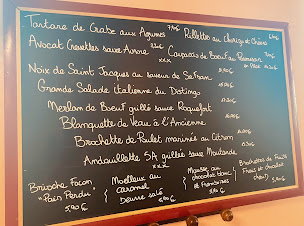 Tartare de Crabe aux Agrumes 7,90€
Rillettes au Chorizo et Chèvre 6,90€
Avocat Crevettes sauce Aurore
Carpaccio de Boeuf au Parmesan
Noix de Saint Jacques au saveur de
Grande Salade italienne du Distingo
Merlan de Boeuf grillé sauce Roquefort
Blanquette de Veau à l'Ancienne
Brochette de Poulet marinée au Citron
Andouillette 5A grillée sauce Moutarde
Brioche Façon
"Pain Perdu"
5,90€
Moelleux au
caramel
beurre salé
Mousse au
chocolat blanc
et Framboises
Brochettes de Fruits
Frais et chocolat
chaud